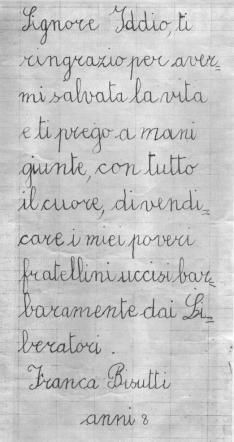 Signore Iddio, ti
ringrazio per aver=
mi salvata la vita
e ti prego a mani
giunte, con tutto
il cuore, di vendi=
care i miei poveri
fratellini uccisi bar=
baramente dai Li=
beratori.
Franca Bisutti
anni 8